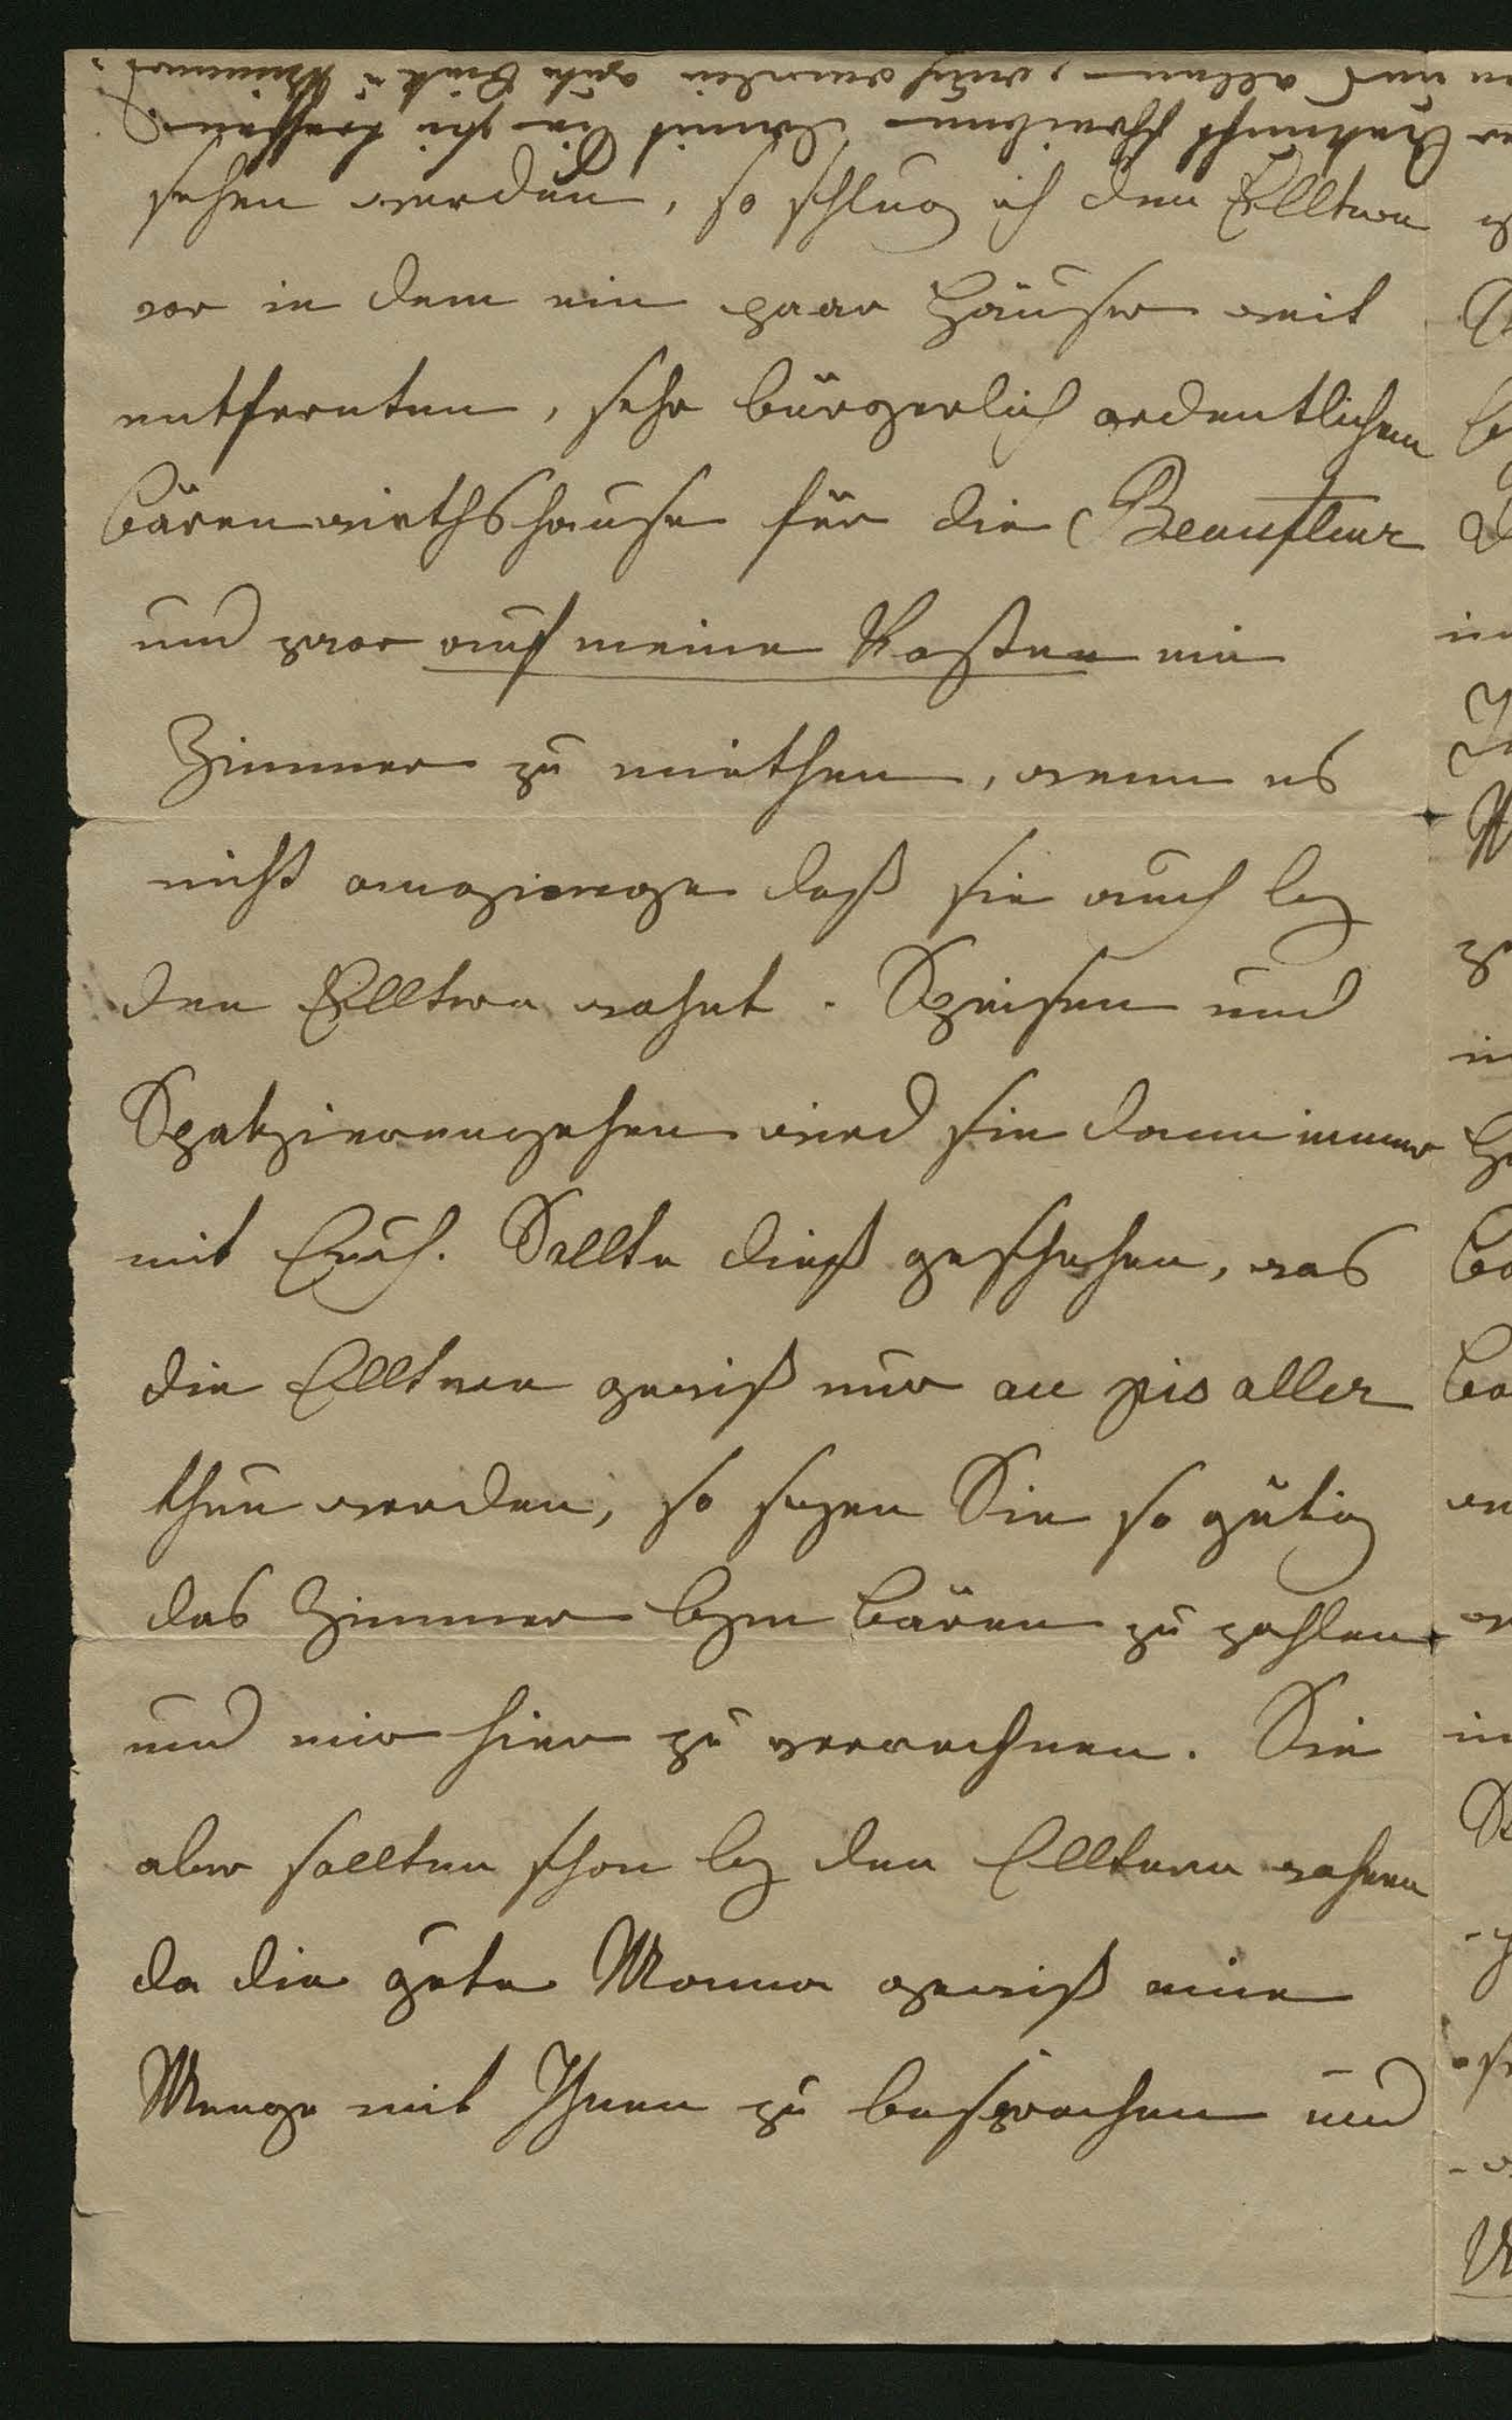 sehen werden, so schlug ich den Elltern
vor in dem ein paar Häuser weit
entfernten, sehr bürgerlich ordentlichem
Bärenwirthshause für die Beaufleur
und zwar auf meine Kosten ein
Zimmer zu miethen, wenn es
nicht anginge daß sie auch bey
den Elltern wohnt. Speisen und
Spatzierengehen wird sie dann immer
mit Euch. Sollte dieß geschehen, was
die Elltern gewiß nur au pis aller
thun werden, so seyen Sie so gütig
das Zimmer beym Bären zu zahlen
und mir hier zu verrechnen. Sie
aber sollten schon bey den Elltern wohnen
da die gute Mama gewiß eine
Menge mit Ihnen zu besprechen und